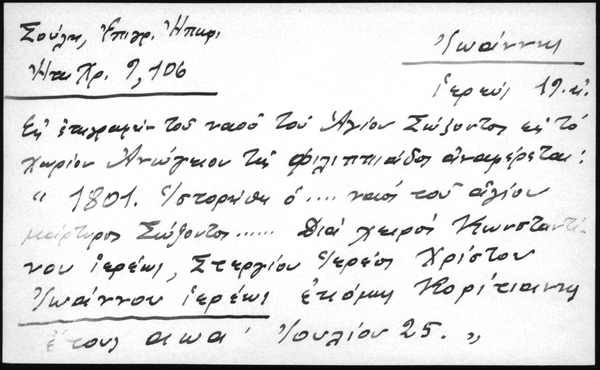 Σούλη, Ἐπιγρ. Ἠπείρ.
Ἠπ. Χρ. 9, 106
Ἰωάννης
ἱερεύς 19. αἰ.
Εἰς ἐπιγραφὴν τοῦ ναοῦ τοῦ Ἁγίου Σώζοντος εἰς τό
χωρίον Ἀνώγειον τῆς Φιλιππιάδος ἀναφέρεται:
" 1801. Ἱστορήθη ὁ .... ναός τοῦ ἁγίου
μάρτυρος Σώζοντος...... Διά χειρός Κωνσταντί
νου ἱερέως, Στεργίου ἱερέος Χρίστου
Ἰωάννου ἱερέως ἐκ κόμης Κορίτιανης
ἔτους αωα' Ἰουλίου 25. "